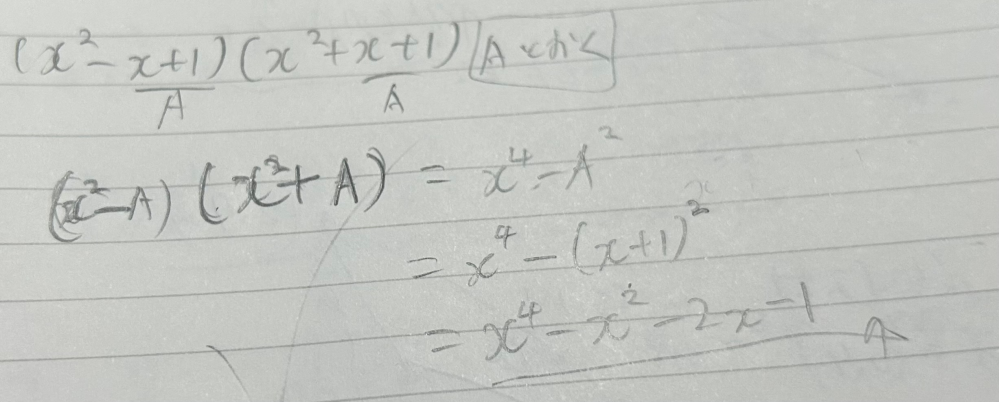 (x²-x+1)(x²+x+1) Aとおく
A A
(x²-A)(x²+A) = x⁴-A²
= x⁴-(x+1)²
= x⁴-x²-2x-1